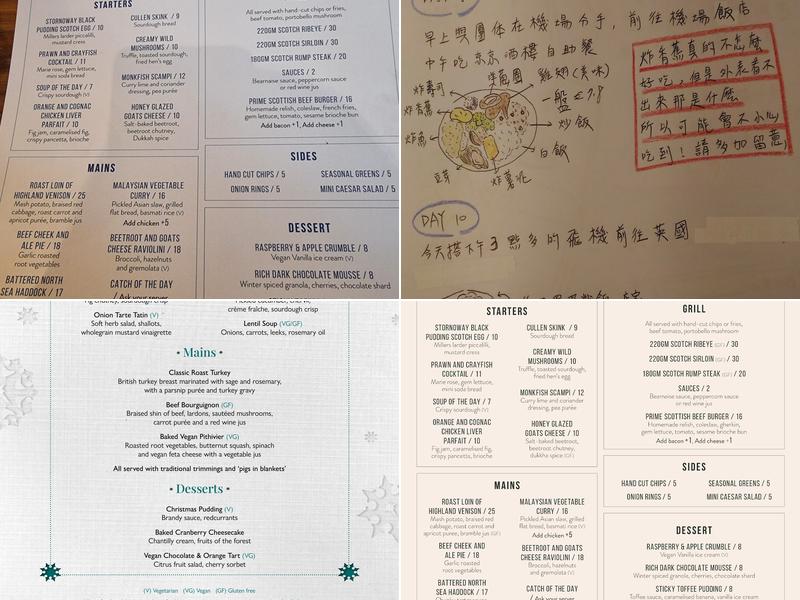 STARTERS
STORNOWAY BLACK
PUDDING SCOTCH EGG / 10
Millers larder piccalilli,
mustard cress
PRAWN AND CRAYFISH
COCKTAIL / 11
Marie rose, gem lettuce,
mini soda bread
SOUP OF THE DAY / 7
Crispy sourdough (V)
ORANGE AND COGNAC
CHICKEN LIVER
PARFAIT / 10
Fig jam, caramelised fig,
crispy pancetta, brioche
CULLEN SKINK / 9
Sourdough bread
CREAMY WILD
MUSHROOMS / 10
Truffle, toasted sourdough,
fried hen's egg
MONKFISH SCAMPI / 12
Curry lime and coriander
dressing, pea purée
HONEY GLAZED
GOATS CHEESE / 10
Salt-baked beetroot,
beetroot chutney,
Dukkha spice
MAINS
ROAST LOIN OF
HIGHLAND VENISON / 25
Mash potato, braised red
cabbage, roast carrot and
apricot purée, bramble jus
BEEF CHEEK AND
ALE PIE / 18
Garlic roasted
root vegetables
BATTERED NORTH
SEA HADDOCK / 17
MALAYSIAN VEGETABLE
CURRY / 16
Pickled Asian slaw, grilled
flat bread, basmati rice (V)
Add chicken +5
BEETROOT AND GOATS
CHEESE RAVIOLI / 18
Broccoli, hazelnuts
and gremolata (V)
CATCH OF THE DAY
/ Ask your server
All served with hand-cut chips or fries,
beef tomato, portobello mushroom
220GM SCOTCH RIBEYE / 30
220GM SCOTCH SIRLOIN / 30
180GM SCOTCH RUMP STEAK / 20
SAUCES / 2
Bearnaise sauce, peppercorn sauce
or red wine jus
PRIME SCOTTISH BEEF BURGER / 16
Homemade relish, coleslaw, french fries,
gem lettuce, tomato, sesame brioche bun
Add bacon +1, Add cheese +1
SIDES
HAND CUT CHIPS / 5
SEASONAL GREENS / 5
ONION RINGS / 5
MINI CAESAR SALAD / 5
DESSERT
RASPBERRY & APPLE CRUMBLE / 8
Vegan Vanilla ice cream (V)
RICH DARK CHOCOLATE MOUSSE / 8
Winter spiced granola, cherries, chocolate shard
早上與團体在機場分手, 前往機場飯店
中午吃京京酒樓自助餐
炸壽司
洋蔥圈
雞翅(美味)
炸香蕉
一盤 £7.8
炒飯
炸魚
白飯
豆芽
炸薯泥
炸香蕉真的不怎麼
好吃, 但是外表看不
出來那是什麼
所以可能會不小心
吃到! 請多加留意)
DAY 10
今天搭下午3點多的飛機前往英國
crème fraîche, sourdough crisp
Onion Tarte Tatin (V)
Soft herb salad, shallots,
wholegrain mustard vinaigrette
Lentil Soup (VG/GF)
Onions, carrots, leeks, rosemary oil
• Mains •
Classic Roast Turkey
British turkey breast marinated with sage and rosemary,
with a parsnip purée and turkey gravy
Beef Bourguignon (GF)
Braised shin of beef, lardons, sautéed mushrooms,
carrot purée and a red wine jus
Baked Vegan Pithivier (VG)
Roasted root vegetables, butternut squash, spinach
and vegan feta cheese with a vegetable jus
All served with traditional trimmings and 'pigs in blankets'
• Desserts •
Christmas Pudding (V)
Brandy sauce, redcurrants
Baked Cranberry Cheesecake
Chantilly cream, fruits of the forest
Vegan Chocolate & Orange Tart (VG)
Citrus fruit salad, cherry sorbet
(V) Vegetarian (VG) Vegan (GF) Gluten free
STARTERS
STORNOWAY BLACK
PUDDING SCOTCH EGG / 10
Millers larder piccalilli,
mustard cress
PRAWN AND CRAYFISH
COCKTAIL / 11
Marie rose, gem lettuce,
mini soda bread
SOUP OF THE DAY / 7
Crispy sourdough (V)
ORANGE AND COGNAC
CHICKEN LIVER
PARFAIT / 10
Fig jam, caramelised fig,
crispy pancetta, brioche
CULLEN SKINK / 9
Sourdough bread
CREAMY WILD
MUSHROOMS / 10
Truffle, toasted sourdough,
fried hen's egg
MONKFISH SCAMPI / 12
Curry lime and coriander
dressing, pea purée
HONEY GLAZED
GOATS CHEESE / 10
Salt-baked beetroot,
beetroot chutney,
dukkha spice (GF)
MAINS
ROAST LOIN OF
HIGHLAND VENISON / 25
Mash potato, braised red
cabbage, roast carrot and
apricot purée, bramble jus (GF)
BEEF CHEEK AND
ALE PIE / 18
Garlic roasted
root vegetables
BATTERED NORTH
SEA HADDOCK / 17
MALAYSIAN VEGETABLE
CURRY / 16
Pickled Asian slaw, grilled
flat bread, basmati rice (V)
Add chicken +5
BEETROOT AND GOATS
CHEESE RAVIOLI / 18
Broccoli, hazelnuts
and gremolata (V)
CATCH OF THE DAY
/ Ask your server
GRILL
All served with hand-cut chips or fries,
beef tomato, portobello mushroom
220GM SCOTCH RIBEYE (GF) / 30
220GM SCOTCH SIRLOIN (GF) / 30
180GM SCOTCH RUMP STEAK (GF) / 20
SAUCES / 2
Bearnaise sauce, peppercorn sauce
or red wine jus
PRIME SCOTTISH BEEF BURGER / 16
Homemade relish, coleslaw, gherkin,
gem lettuce, tomato, sesame brioche bun
Add bacon +1, Add cheese +1
SIDES
HAND CUT CHIPS / 5
SEASONAL GREENS / 5
ONION RINGS / 5
MINI CAESAR SALAD / 5
DESSERT
RASPBERRY & APPLE CRUMBLE / 8
Vegan Vanilla ice cream (V)
RICH DARK CHOCOLATE MOUSSE / 8
Winter spiced granola, cherries, chocolate shard
STICKY TOFFEE PUDDING / 8
Toffee sauce, caramelised banana, vanilla ice cream